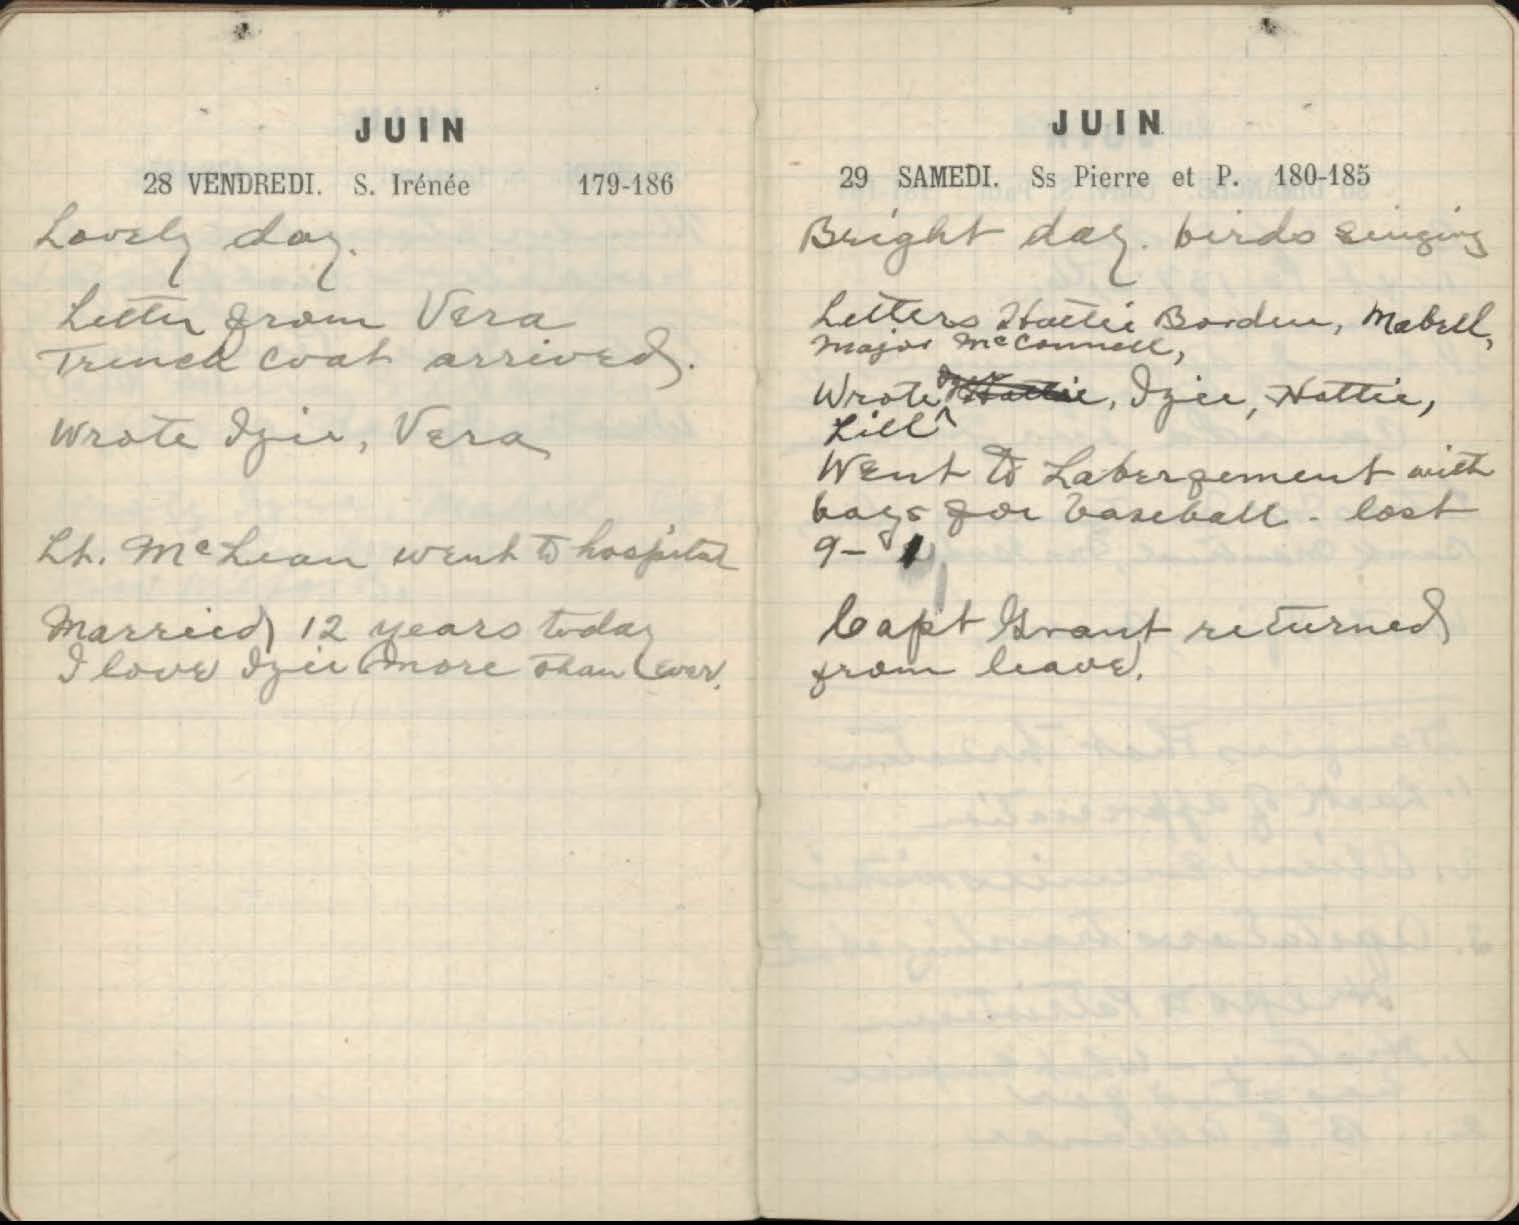 JUIN
28 VENDREDI. S. Irénée 179-186
Lovely day.
Letter from Vera
Trench coat arrived.
Wrote Izie, Vera
Lt. McLean went to hospital
Married 12 years today
I love Izie more than ever.
JUIN
29 SAMEDI. Ss Pierre et P. 180-185
Bright day. birds singing
Letters Hattie Borden, Mabell,
Major McConnell,
Wrote Hattie, Izie, Hattie,
Lill
Went to Labergement with
boys for baseball - lost
9-1
Capt Grant returned
from leave.